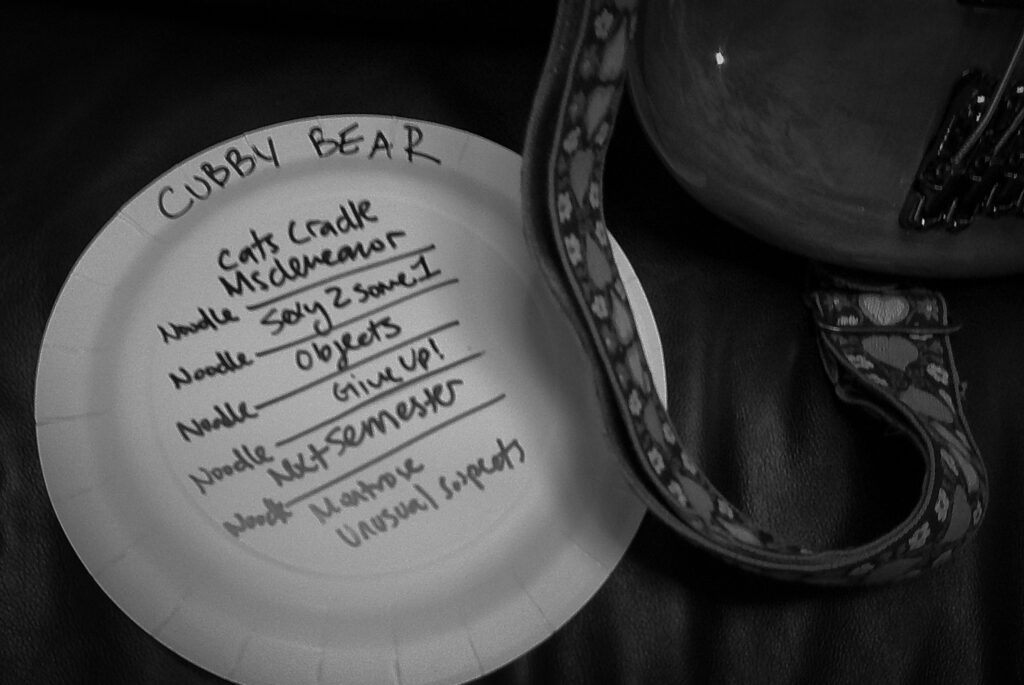 CUBBY BEAR
Cats Cradle
Msdemeanor
Noodle
Say 2 some 1
Noodle
Objects
Noodle
Give Up!
Noodle
Nxt semester
Noodle
Montrose
Unusual Suspects